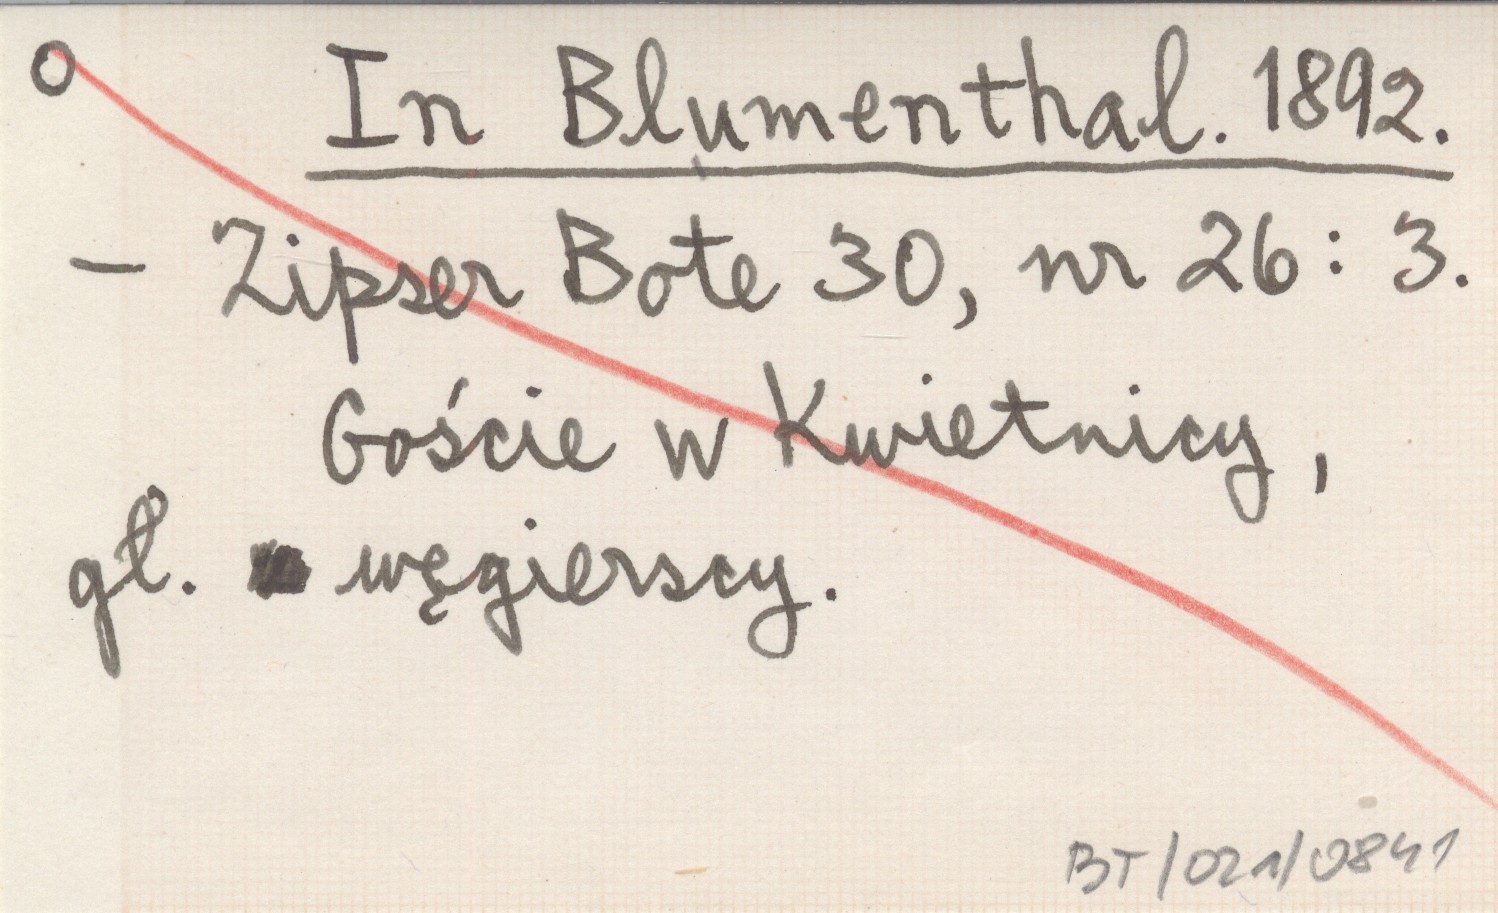 O In Blumenthal. 1892.
– Zipser Bote 30, nr 26: 3.
Goście w Kwietnicy,
gł. węgierscy.
BT/021/0841